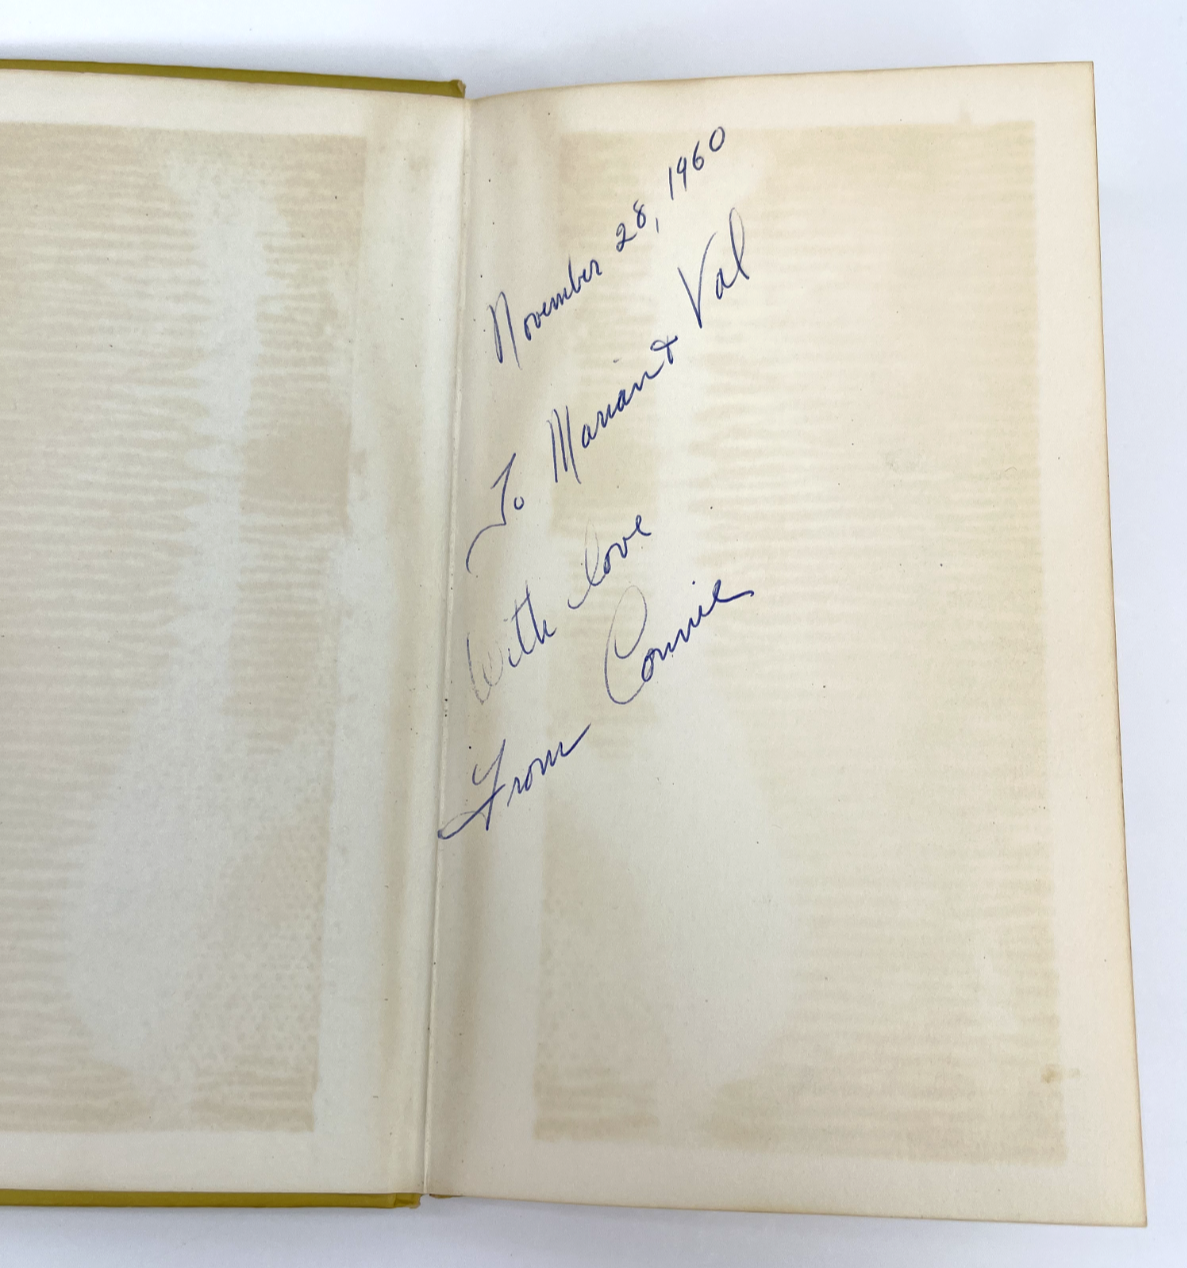 November 28, 1960
To Marian & Val
With love
From Connie